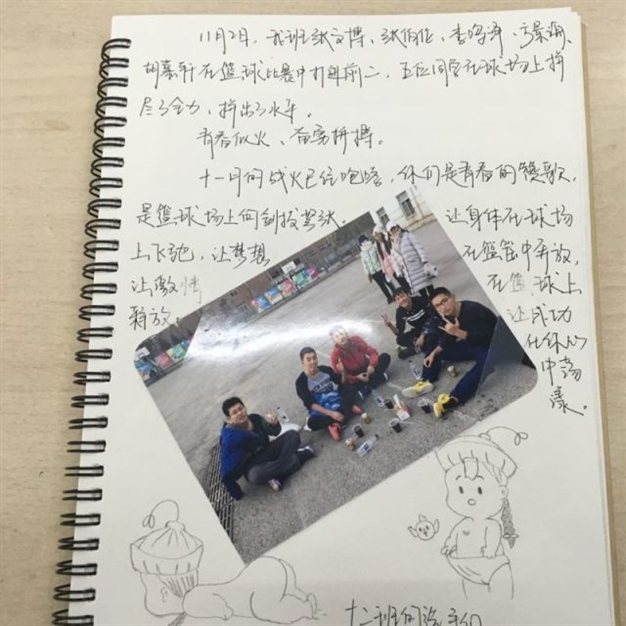 11月2日,我班张文博、张伯任、李鸣泽、
胡嘉轩在篮球比赛中打到前二,五位同学在球场上拼
尽了全力,拼出了水平。
青春似火、奋勇拼搏。
十一月的战火已经响起,你们是青春的赞歌,
是篮球场上的 让身体在球场
上飞驰,让梦想 在篮筐中奔放,
让激情 在篮球上
释放。 让成功
在你心
中荡
漾。
十二班的